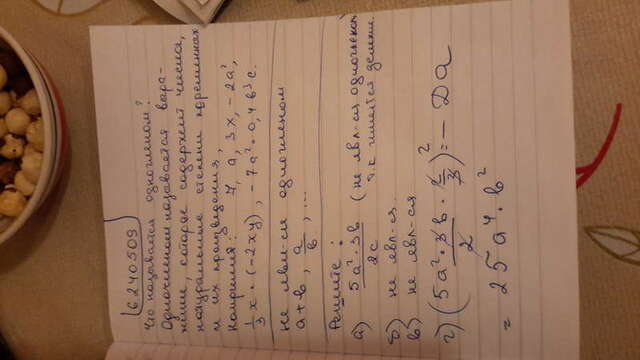 6240509
Что называется одночленом?
Одночленом называется выра-
жение, которое содержит числа,
натуральные степени переменных
и их произведения,
например: 7, a, 3x, -2a²,
1/3 x · (-2xy), -7a² · 0,4b³c.
не явл-ся одночленом
a+b, a/b, ...
Решите:
а) 5a²·3b/2c (не явл-ся одночлен
т.к имеется деление
б) не явл-ся.
в) не явл-ся
г) (5a²·3b/2 · 2/3)² = — Да
= 25a⁴·b²